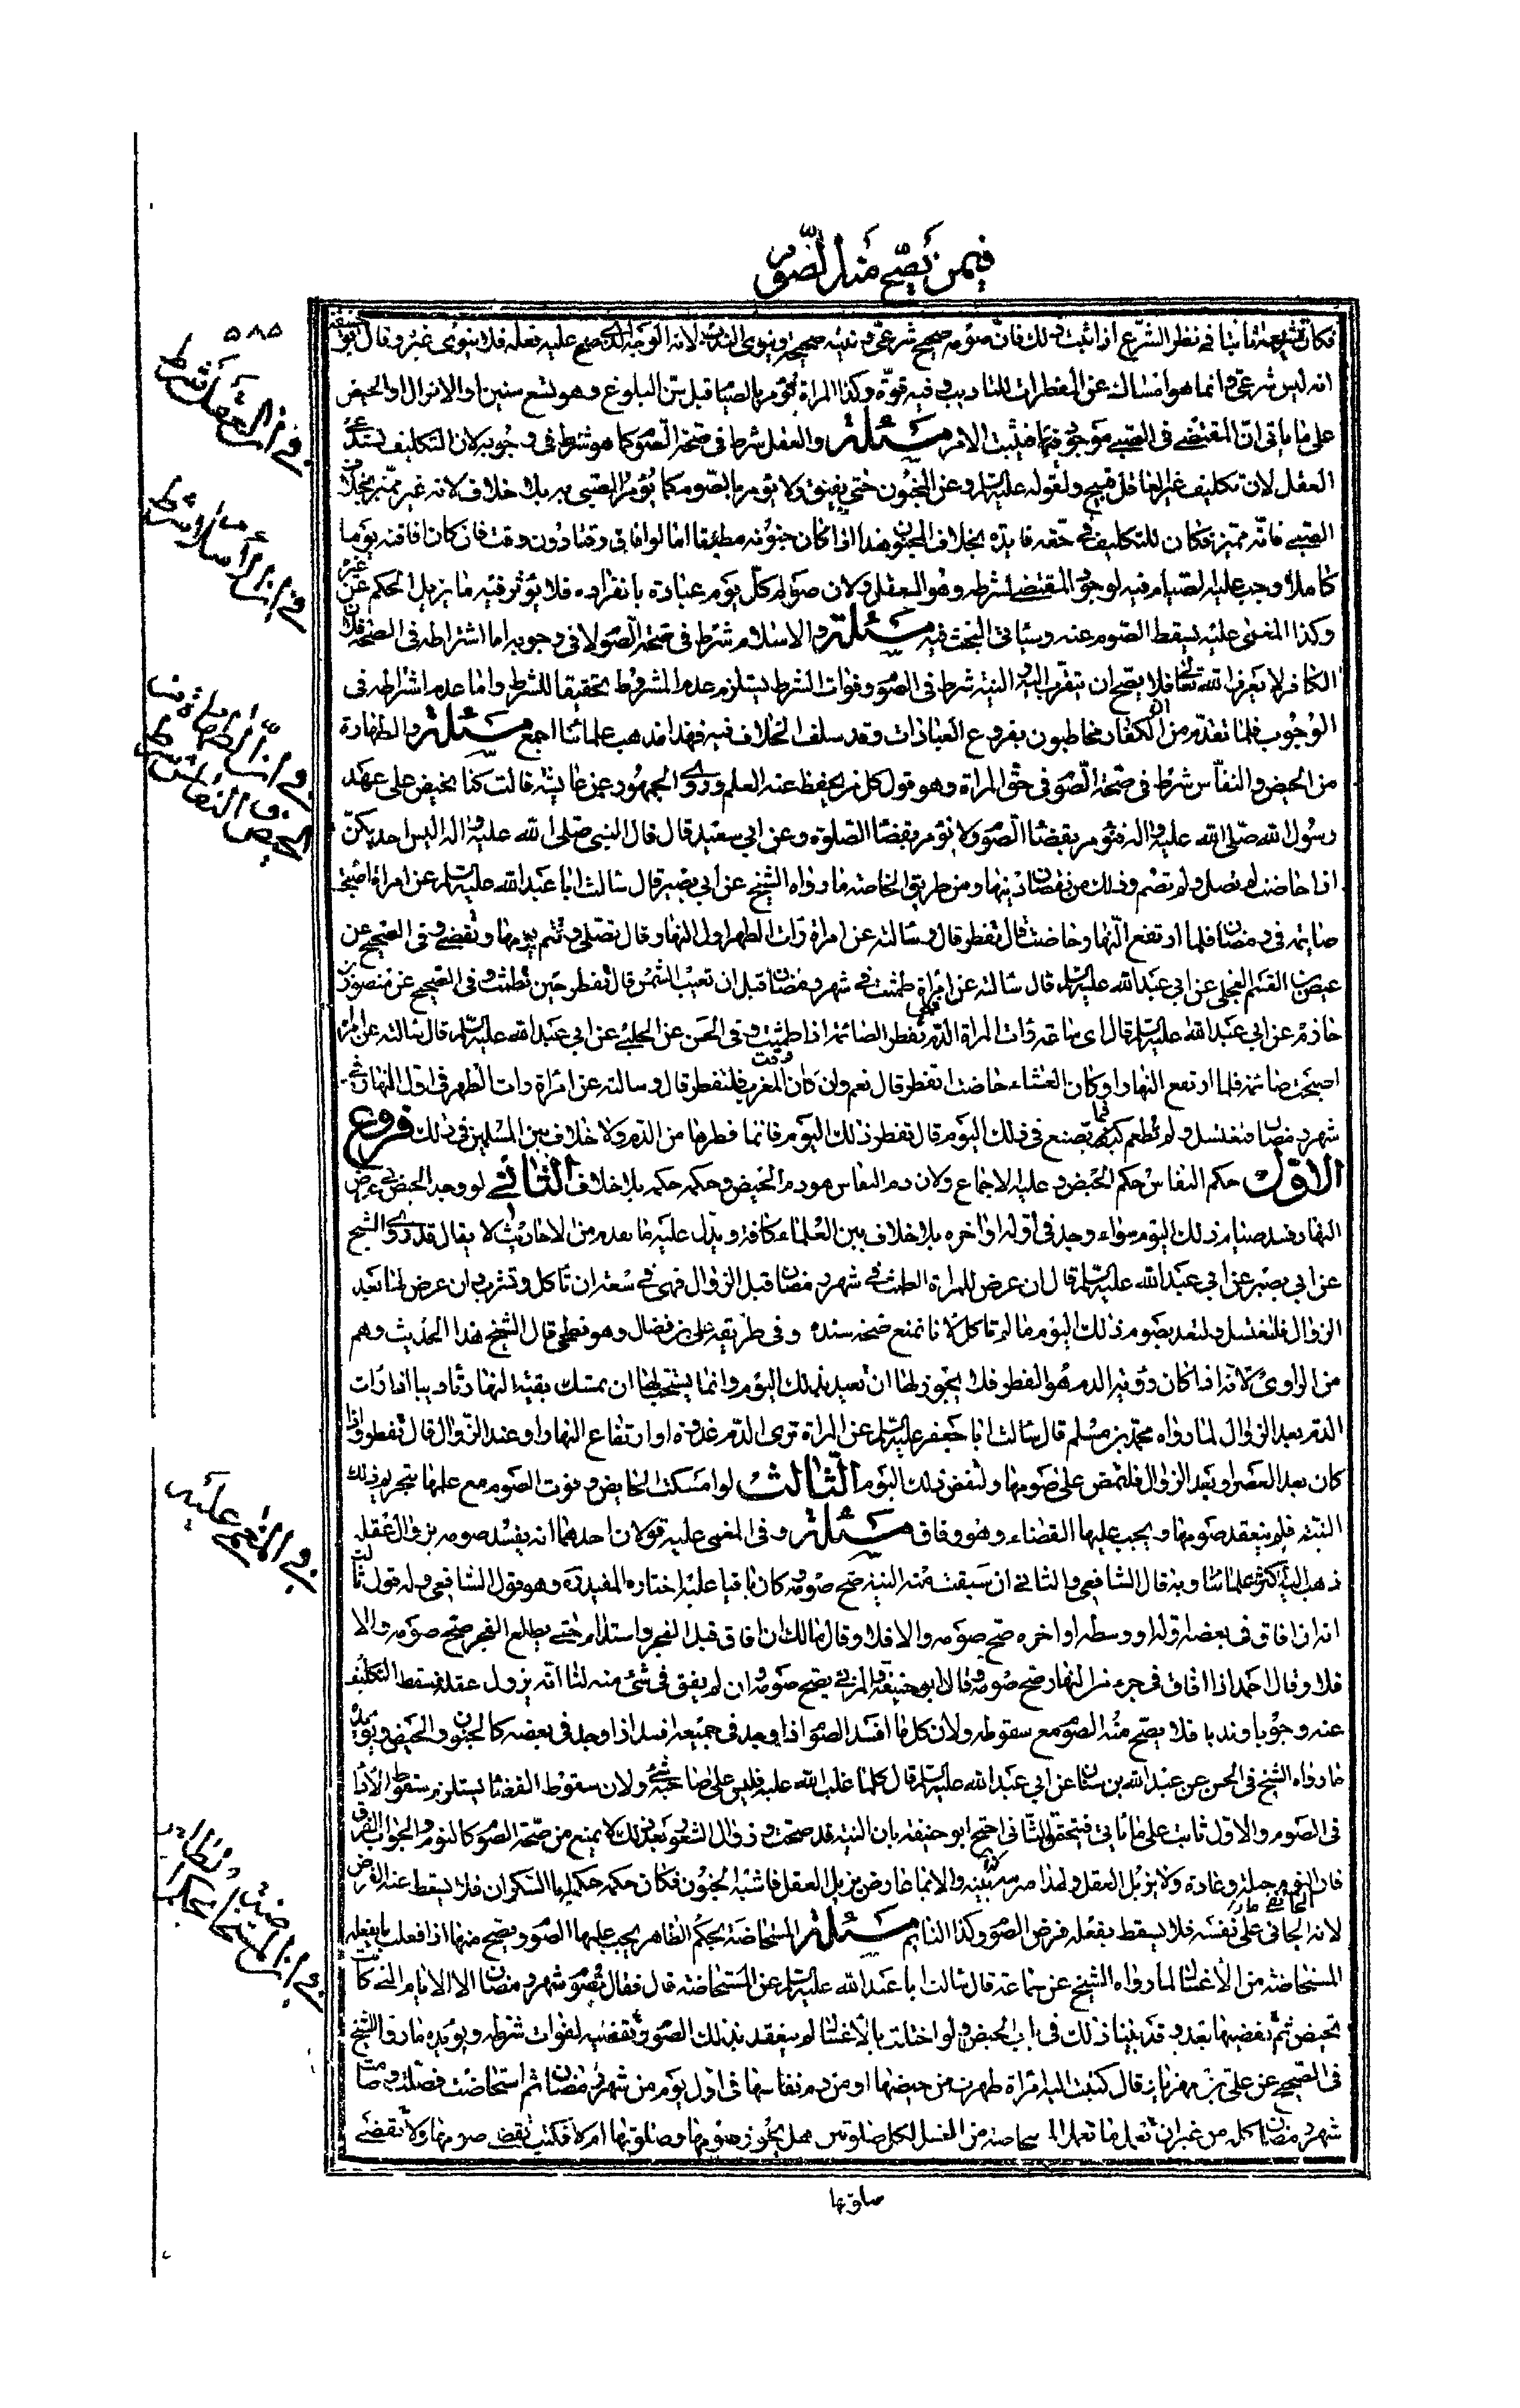 فيمن يصح منه الصوم
٥٨٥
فكان تشريعه ثابتا في نظر الشرع اذا ثبت ذلك فان صومه صحيح شرعي ونيته صحيحة وينوي الندب لانه الوجه الذي يصح عليه فعله فلا ينوي غيره وقال ابو حنيفة
انه ليس شرعي وانما هو امساك عن المفطرات للتاديب وفيه قوة وكذا المراة تؤمر بالصيام قبل سن البلوغ وهو تسع سنين او الانزال او الحيض
على ما ياتي ان المقتضي في الصبي موجود فيها فثبت الامر مسئلة والعقل شرط في صحة الصوم كما هو شرط في وجوبه لان التكليف يستدعي
العقل لان تكليف غير العاقل قبيح ولقوله عليه السلم وعن المجنون حتى يفيق ولا يؤمر بالصوم كما يؤمر الصبي به بلا خلاف لانه غير مميز بخلاف
الصبي فانه مميز فكان للتكليف في حقه فايدة بخلاف المجنون هذا اذا كان جنونه مطبقا اما لو افاق وقتا دون وقت فان كان افاقته يوما
كاملا وجب عليه الصيام فيه لوجود المقتضي لشرطه وهو العقل ولان صوم كل يوم عبادة بانفراده فلا يؤثر فيه ما يزيل الحكم عن غيره
وكذا المغمى عليه يسقط الصوم عنه وسياتي البحث فيه مسئلة والاسلام شرط في صحة الصوم لا في وجوبه اما اشتراطه في الصحة فلان
الكافر لا يعرف الله تعالى فلا يصح ان يتقرب اليه والنية شرط في الصوم وفوات الشرط يستلزم عدم المشروط تحقيقا للشرط واما عدم اشتراطه في
الوجوب فلما تقدم من ان الكفار مخاطبون بفروع العبادات وقد سلف الخلاف فيه فهذا مذهب علمائنا اجمع مسئلة والطهارة
من الحيض والنفاس شرط في صحة الصوم في حق المراة وهو قول كل من يحفظ عنه العلم وروى الجمهور عن عايشة قالت كنا نحيض على عهد
رسول الله صلى الله عليه واله فنؤمر بقضاء الصوم ولا نؤمر بقضاء الصلوة وعن ابي سعيد قال قال النبي صلى الله عليه واله اليس احديكن
اذا حاضت لم تصل ولم تصم وذلك من نقصان دينها ومن طريق الخاصة ما رواه الشيخ عن ابي بصير قال سالت ابا عبد الله عليه السلم عن امراة اصبحت
صايمة في رمضان فلما ارتفع النهار حاضت قال تفطر قال وسالته عن امراة رات الطهر اول النهار قال تصلي وتتم يومها وتقضي وفي الصحيح عن
عيص بن القسم العجلي عن ابي عبد الله عليه السلم قال سالته عن امراة طمثت في شهر رمضان قبل ان تغيب الشمس قال تفطر حين تطمث وفي الصحيح عن منصور بن
حازم عن ابي عبد الله عليه السلم قال اي ساعة رات المراة الدم فهي تفطر الصائمة اذا طمثت وفي الحسن عن الحلبي عن ابي عبد الله عليه السلم قال سالته عن امراة
اصبحت صائمة فلما ارتفع النهار او كان العشاء حاضت اتفطر قال نعم وان كان وقت المغرب فلتفطر قال وسالته عن امراة رات الطهر في اول النهار في
شهر رمضان فتغتسل ولم تطعم كيف تصنع في ذلك اليوم قال تفطر ذلك اليوم فانما فطرها من الدم ولا خلاف بين المسلمين في ذلك فروع
الاول حكم النفاس حكم الحيض وعليه الاجماع ولان دم النفاس هو دم الحيض وحكمه حكمه بلا خلاف الثاني لو وجد الحيض في بعض
النهار فسد صيام ذلك اليوم سواء وجد في اوله او اخره بلا خلاف بين العلماء كافة ويدل عليه ما تقدم من الاحاديث لا يقال قد روى الشيخ
عن ابي بصير عن ابي عبد الله عليه السلم قال ان عرض للمراة الطمث في شهر رمضان قبل الزوال فهي في سعة ان تاكل وتشرب وان عرض لها بعد
الزوال فلتغتسل ولتعتد بصوم ذلك اليوم ما لم تاكل لانا نمنع صحة سنده وفي طريقه علي بن فضال وهو فطحي قال الشيخ هذا الحديث وهم
من الراوي لانه اذا كان رؤية الدم هو المفطر فلا يجوز لها ان تعتد بذلك اليوم وانما يستحب لها ان تمسك بقية النهار تاديبا اذا رات
الدم بعد الزوال لما رواه محمد بن مسلم قال سالت ابا جعفر عليه السلم عن المراة ترى الدم غدوة او ارتفاع النهار او عند الزوال قال تفطر واذا
كان بعد العصر او بعد الزوال فلتمض على صومها ولتقض ذلك اليوم الثالث لو امسكت الحايض ونوت الصوم مع علمها بتحريم ذلك
النية فلم ينعقد صومها ويجب عليها القضاء وهو وفاق مسئلة وفي المغمى عليه قولان احدهما انه يفسد صومه بزوال عقله
ذهب اليه اكثر علمائنا وبه قال الشافعي والثاني ان سبقت منه النية صح صومه وكان باقيا عليه اختاره المفيد ره وهو قول الشافعي وله قول ثالث
انه اذا افاق في بعضه اوله او وسطه او اخره صح صومه والا فلا وقال مالك ان افاق قبل الفجر واستدام حتى يطلع الفجر صح صومه والا
فلا وقال احمد اذا افاق في جزء من النهار صح صومه وقال ابو حنيفة والمزني يصح صومه وان لم يفق في شئ منه لنا انه بزوال عقله يسقط التكليف
عنه وجوبا وندبا فلا يصح منه الصوم مع سقوطه ولان كل ما افسد الصوم اذا وجد في جميعه افسد اذا وجد في بعضه كالجنون والحيض ويؤيده
ما رواه الشيخ في الحسن عن عبد الله بن سنان عن ابي عبد الله عليه السلم قال كلما غلب الله عليه فليس على صاحبه شئ ولان سقوط القضاء يستلزم سقوط الاداء
في الصوم والاول ثابت على ما ياتي فيتحقق الثاني احتج ابو حنيفة بان النية قد صحت وزوال الشعور بعد ذلك لا يمنع من صحة الصوم كالنوم والجواب الفرق
فان النوم جبلة وعادة ولا يزيل العقل ولهذا متى نبه تنبه والاغماء عارض يزيل العقل فاشبه الجنون فكان حكمه حكمه اما السكران فلا يسقط عنه الفرض
لانه الجاني على نفسه فلا يسقط بفعله فرض الصوم وكذا النايم مسئلة المستحاضة بحكم الطاهر يجب عليها الصوم ويصح منها اذا فعلت ما يفعله
المستحاضة من الاغسال لما رواه الشيخ عن سماعة قال سالت ابا عبد الله عليه السلم عن المستحاضة قال فقال تصوم شهر رمضان الا الايام التي كانت
تحيض ثم تقضيها بعد وقد بينا ذلك في باب الحيض ولو اخلت بالاغسال لم ينعقد بذلك الصوم وتقضيه لفوات شرطه ويؤيده ما رواه الشيخ
في الصحيح عن علي بن مهزيار قال كتبت اليه امراة طهرت من حيضها او من دم نفاسها في اول يوم من شهر رمضان ثم استحاضت فصلت وصامت
شهر رمضان كله من غير ان تعمل ما تعمله المستحاضة من الغسل لكل صلوتين هل يجوز صومها وصلوتها ام لا فكتب تقضي صومها ولا تقضي
صلوتها
في ان العقل شرط
في ان الاسلام شرط
في ان الطهارة من
الحيض والنفاس شرط
في المغمى عليه